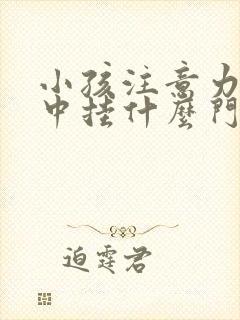 小孩注意力
中挂什麼門
迫霆君